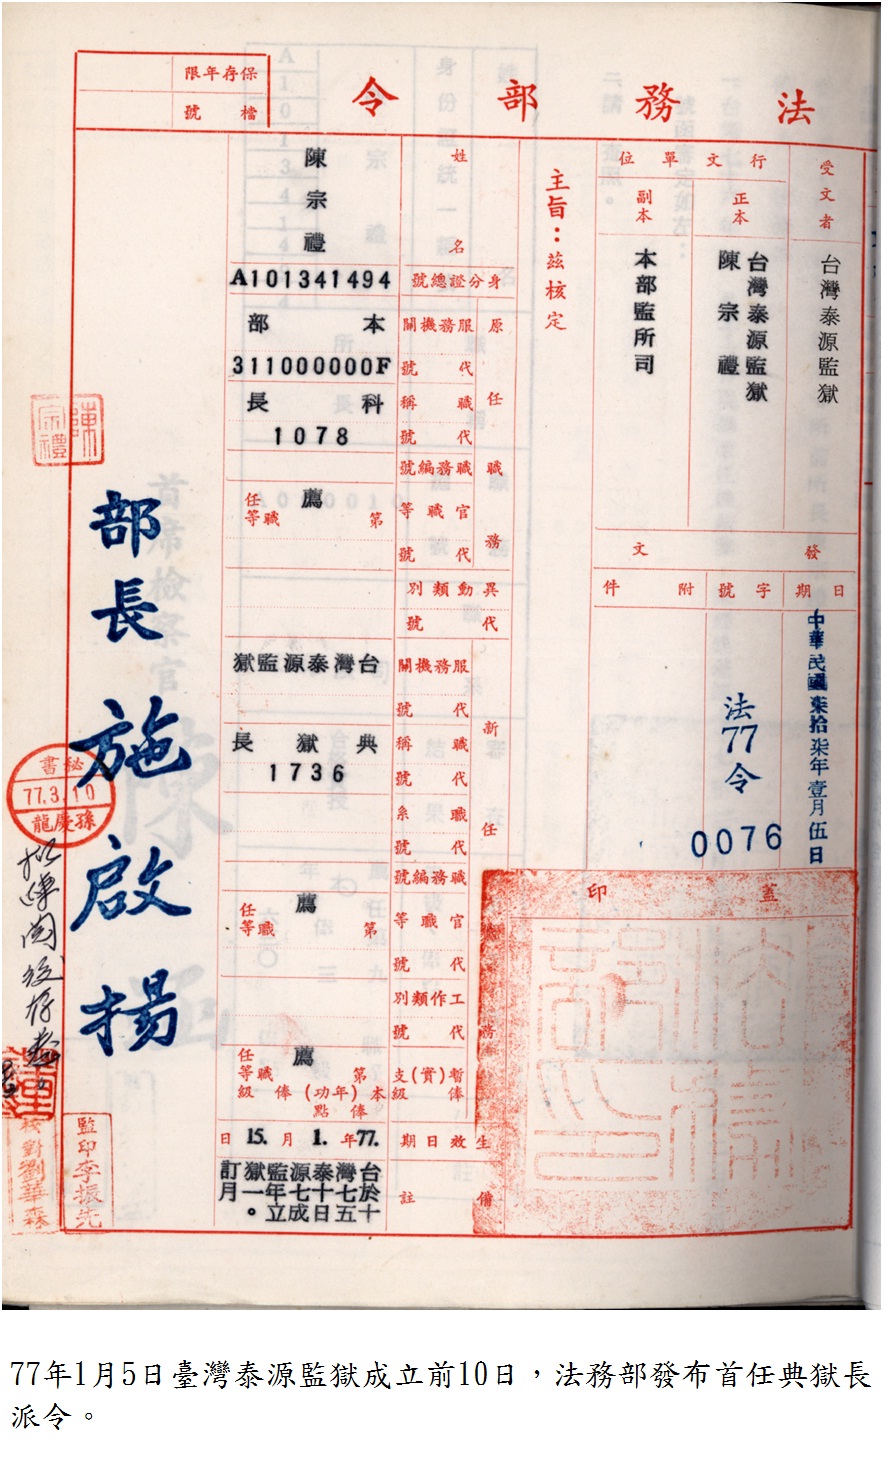 法務部令
保存年限
檔號
受文者
台灣泰源監獄
行文單位
正本
台灣泰源監獄
陳宗禮
副本
本部監所司
發文
日期
中華民國柒拾柒年壹月伍日
字號
法77令
0076
附件
蓋印
主旨：茲核定
姓名
陳宗禮
身分證總號
A101341494
原任職務
服務機關
本部
代號
311000000F
職稱
科長
代號
1078
職務編號
官職等
薦任第職等
代號
異動類別
代號
新任職務
服務機關
台灣泰源監獄
代號
職稱
典獄長
代號
1736
職系
代號
職務編號
官職等
薦任第職等
代號
工作類別
代號
暫(實)支俸級
薦任第職等本(年功)俸級
俸點
生效日期
77.年1.月15.日
備註
台灣泰源監獄訂於七十七年一月十五日成立。
部長施啟揚
陳宗禮
秘書
77.3.10
孫慶龍
監印李振先
校對劉華森
77年1月5日臺灣泰源監獄成立前10日，法務部發布首任典獄長
派令。